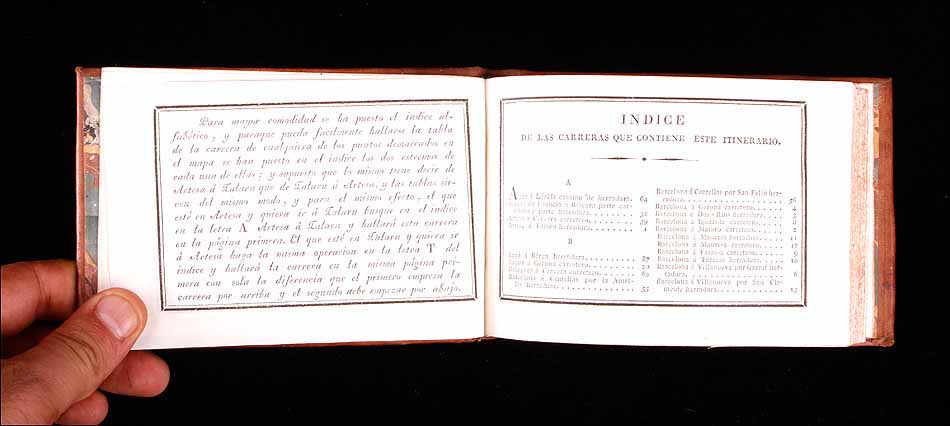 Para mayor comodidad se ha puesto el indice al-
fabético, y paraque pueda facilmente hallarse la tabla
de la carrera de cualquiera de los puntos demarcados en
el mapa se han puesto en el indice los dos estremos de
cada una de ellas; y supuesto que lo mismo tiene decir de
Artesa á Talarn que de Talarn á Artesa, y las tablas sir-
ven del mismo modo, y para el mismo efecto, el que
esté en Artesa y quiera ir á Talarn busque en el indice
en la letra A Artesa á Talarn y hallará esta carrera
en la página primera. El que esté en Talarn y quiera ir
á Artesa haga la misma operacion en la letra T del
indice y hallará la carrera en la misma página pri-
mera con sola la diferencia que el primero empieza la
carrera por arriba y el segundo debe empezar por abajo.
INDICE
DE LAS CARRERAS QUE CONTIENE ESTE ITINERARIO.
A
camino de herradura. 64
de Francia á parte car-
y parte herradura. 32
á carretera. 59
á Talarn herradura. 1
B
á herradura. 57
á Gerona carretera. 20
á Cervera carretera. 60
á Centellas por la
herradura. 55
Barcelona á Centellas por San Feliu her-
radura. 56
Barcelona á Gerona carretera. 4
Barcelona á carretera. 3
Barcelona á Igualada carretera. 8
Barcelona á Mataró carretera. 2
Barcelona á Manresa herradura. 11
Barcelona á Manresa carretera. 17
Barcelona á carretera. 9
Barcelona á herradura. 10
Barcelona á Villanueva por her-
radura. 6
Barcelona á Villanueva por San Cle-
mente herradura. 13